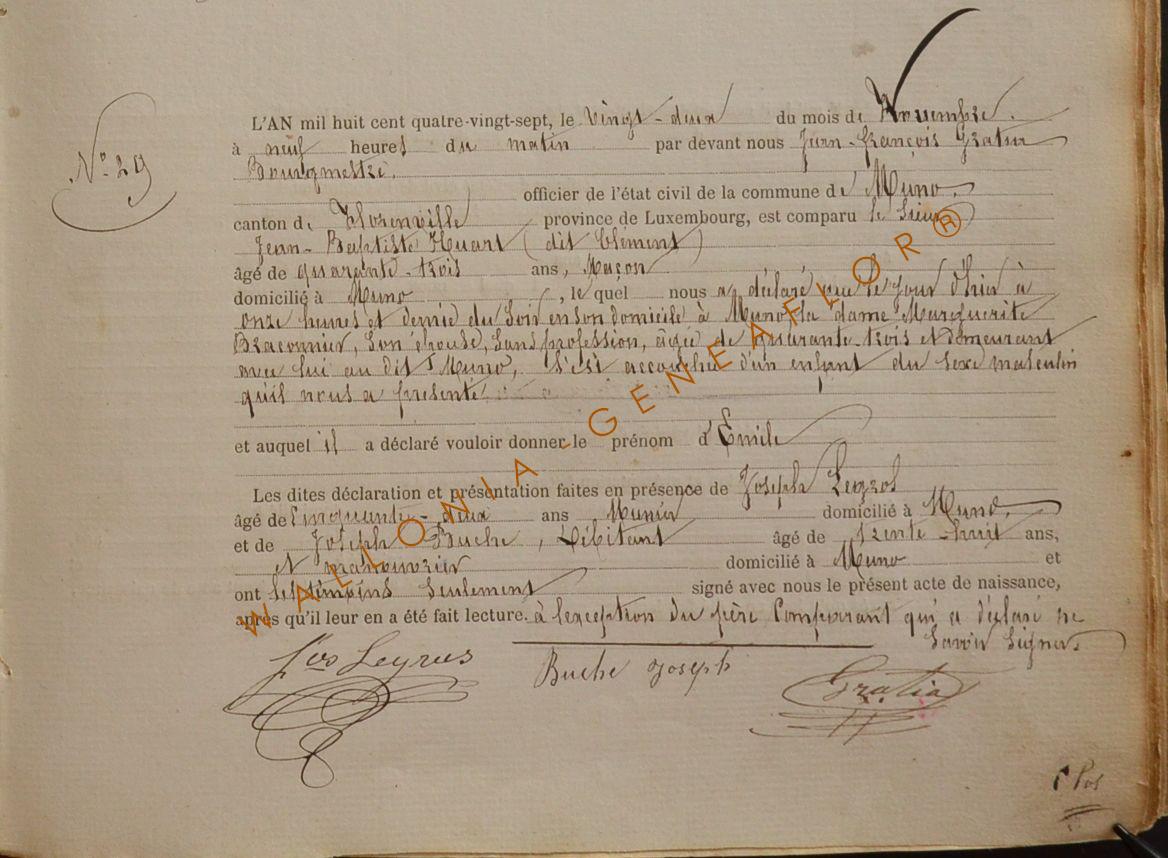 L'AN mil huit cent quatre-vingt-sept, le Vingt-deux du mois de Novembre.
N° 29
à neuf heures du matin par devant nous Jean-François Gratia
Bourgmestre.
officier de l'état civil de la commune de Muno.
canton de Florenville province de Luxembourg, est comparu le Sieur
Jean-Baptiste Huart (dit Clément)
âgé de quarante-trois ans, Maçon
domicilié à Muno, le quel nous a déclaré que le jour d'hier à
onze heures et demie du Soir en son domicile à Muno la dame Marguerite
Braconnier, Son épouse, Sans profession, âgée de quarante-trois et demeurant
avec lui au dit Muno, s'est accouchée d'un enfant du Sexe masculin
qu'il nous a présenté
et auquel il a déclaré vouloir donner le prénom d'Emile
Les dites déclaration et présentation faites en présence de Joseph
âgé de Cinquante-deux ans Menuir domicilié à Muno.
et de Joseph Buche, Débitant âgé de trente-huit ans,
et manouvrier domicilié à Muno et
ont les témoins Seulement signé avec nous le présent acte de naissance,
après qu'il leur en a été fait lecture. à l'exception du père Comparant qui a déclaré ne
Savoir Signer.
Jos Leyrus
Buche Joseph
Gratia
WALLONIA-GENEAFLOR®